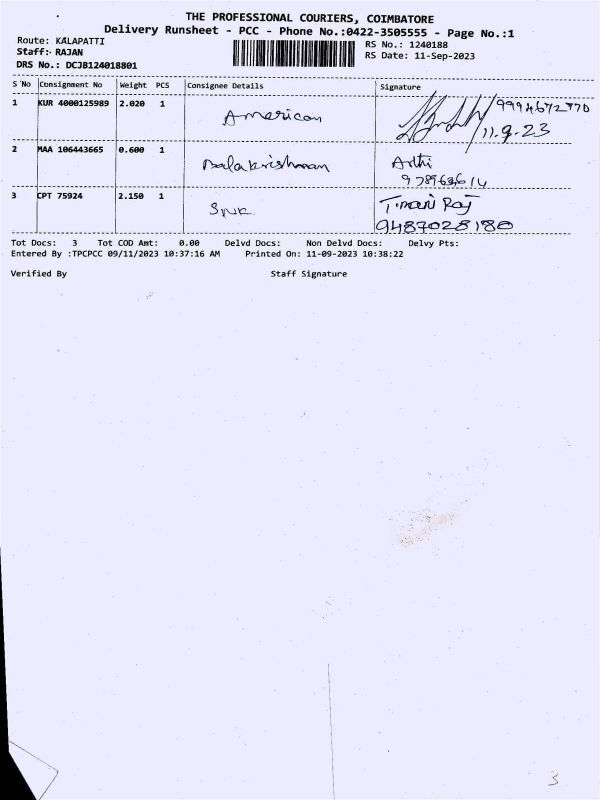 THE PROFESSIONAL COURIERS, COIMBATORE
Delivery Runsheet - PCC - Phone No.:0422-3505555 - Page No.:1
Route: KALAPATTI
RS No.: 1240188
Staff: RAJAN
RS Date: 11-Sep-2023
DRS No.: DCJB124018801
S No Consignment No Weight PCS Consignee Details Signature
1 KUR 4000125989 2.020 1 American 9994672770
11.9.23
2 MAA 106443665 0.600 1 Balakrishnan Arthi
3 CPT 75924 2.150 1 SNR T.Mani Raj
9487028180
Tot Docs: 3 Tot COD Amt: 0.00 Delvd Docs: Non Delvd Docs: Delvy Pts:
Entered By :TPCPCC 09/11/2023 10:37:16 AM Printed On: 11-09-2023 10:38:22
Verified By Staff Signature